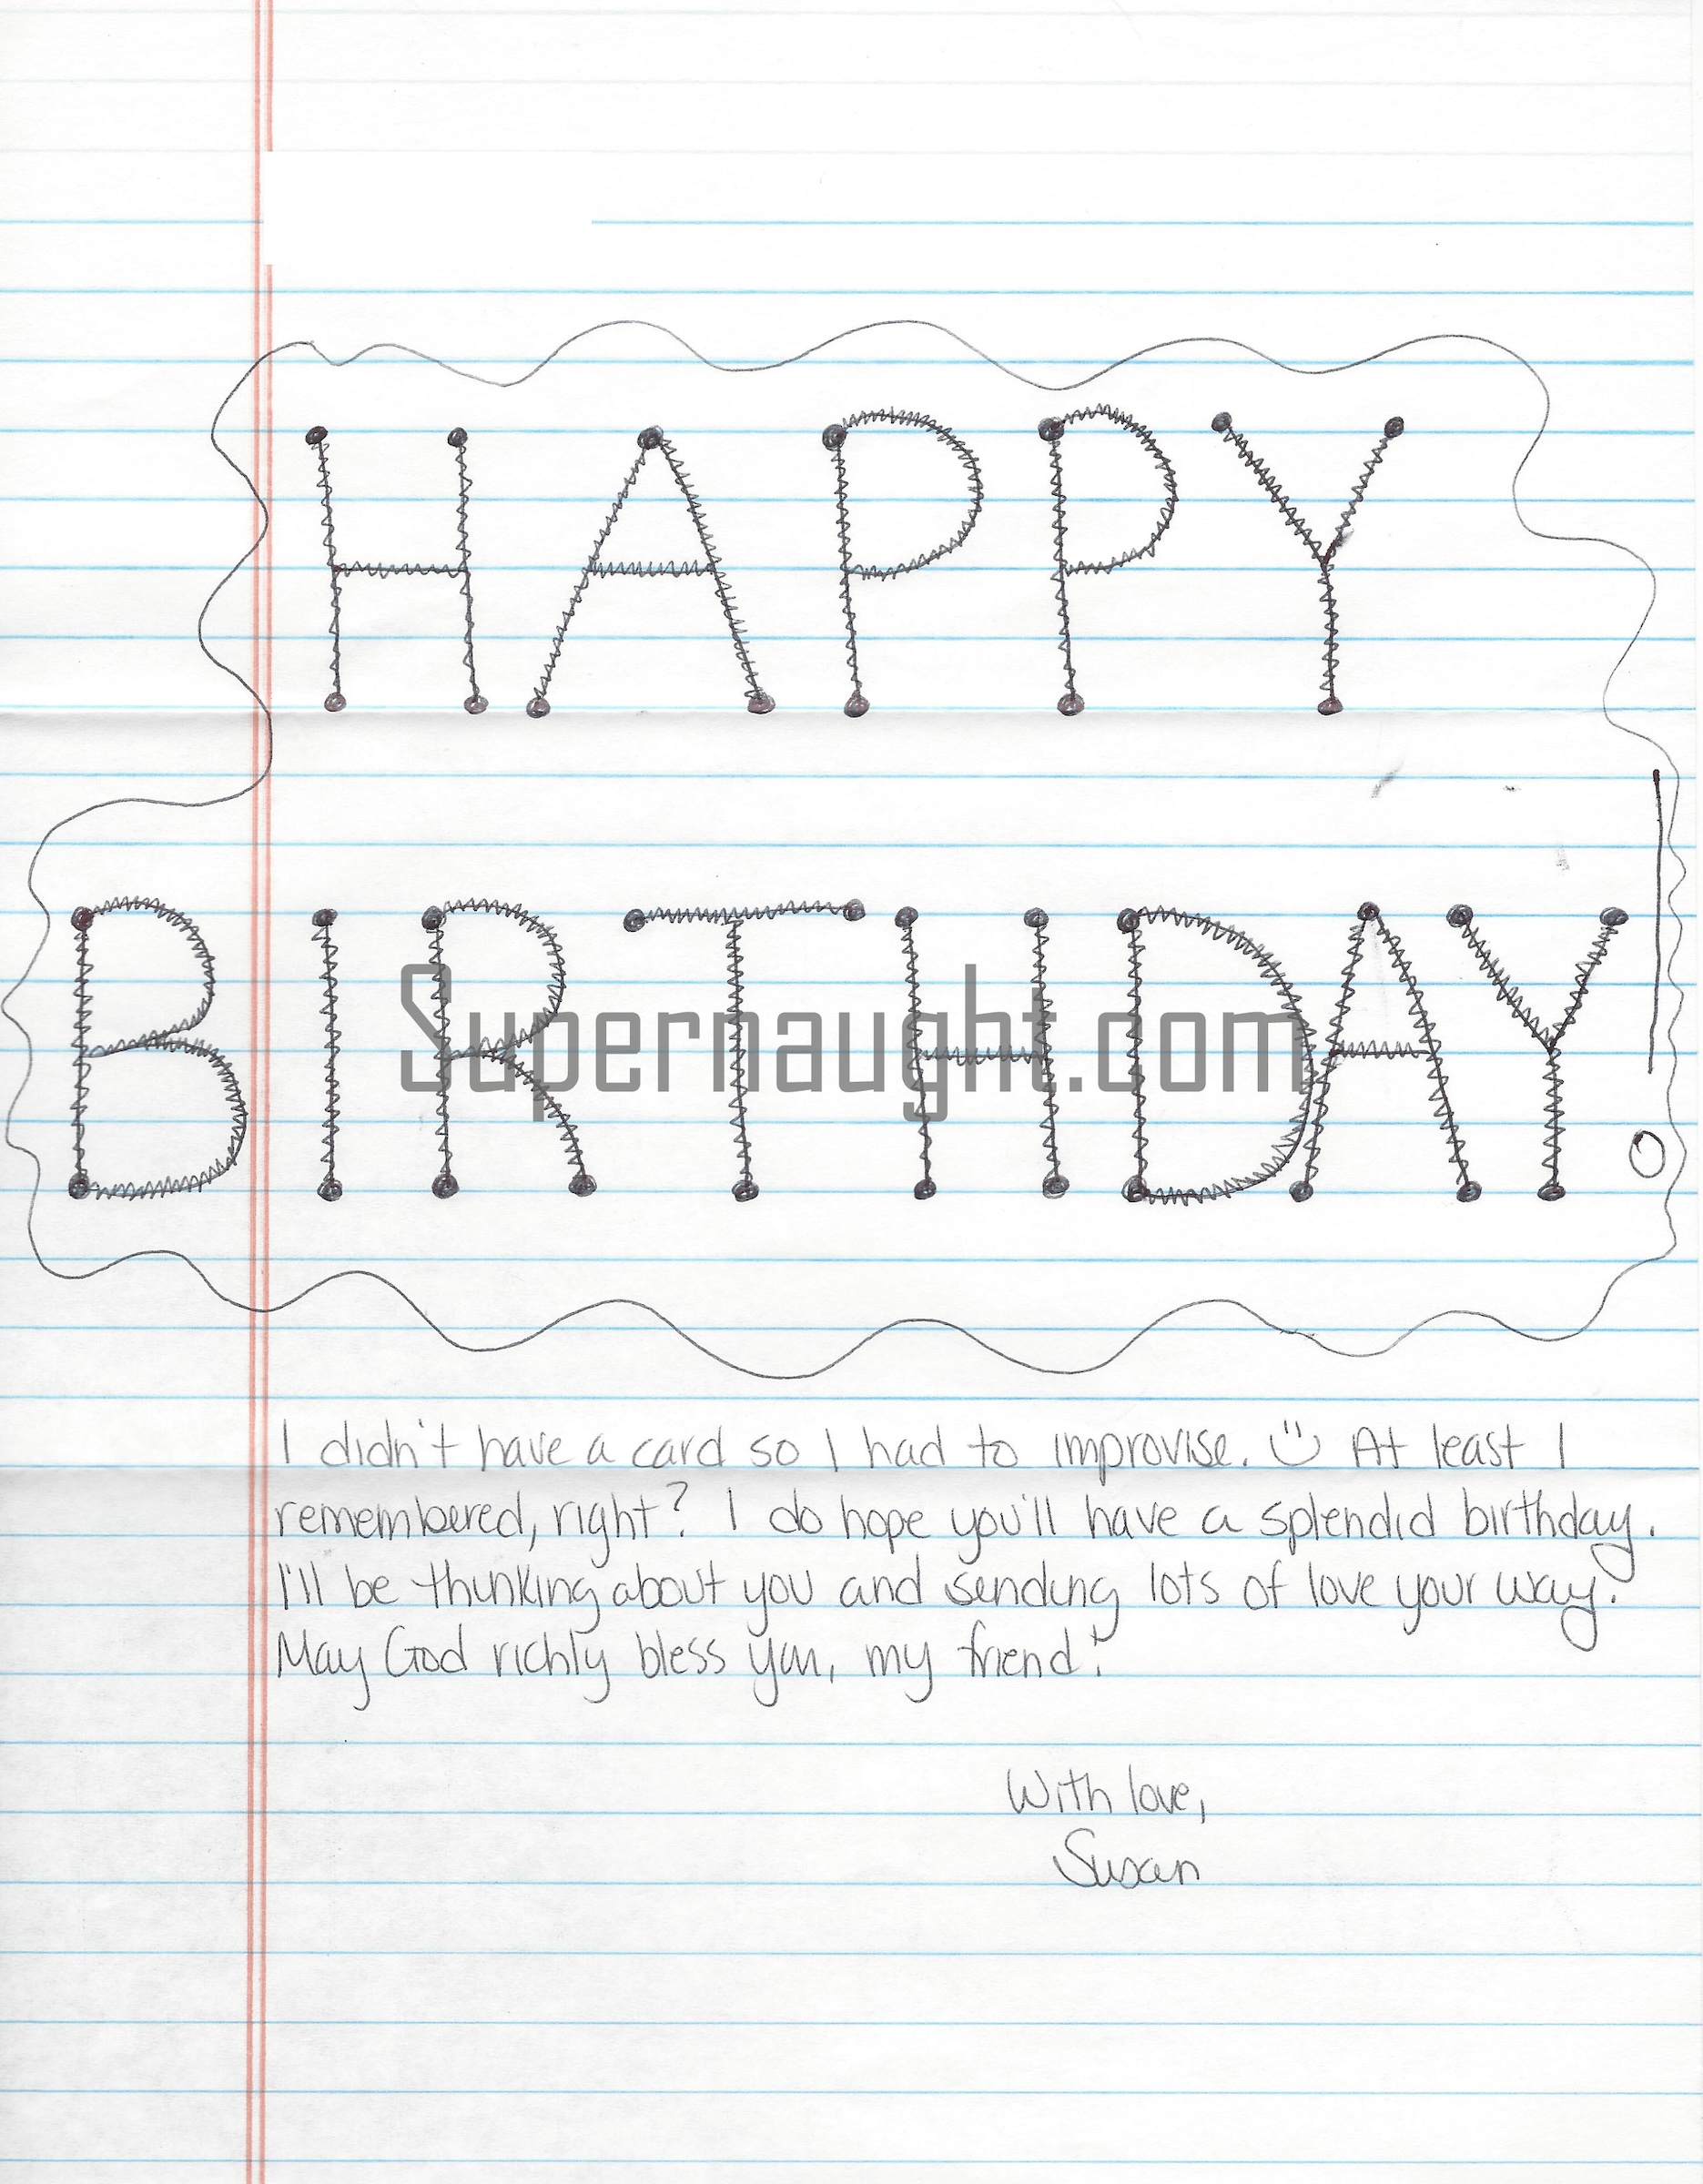 HAPPY
BIRTHDAY!
Supernaught.com
I didn't have a card so I had to improvise. At least I
remembered, right? I do hope you'll have a splendid birthday.
I'll be thinking about you and sending lots of love your way.
May God richly bless you, my friend!
With love,
Susan